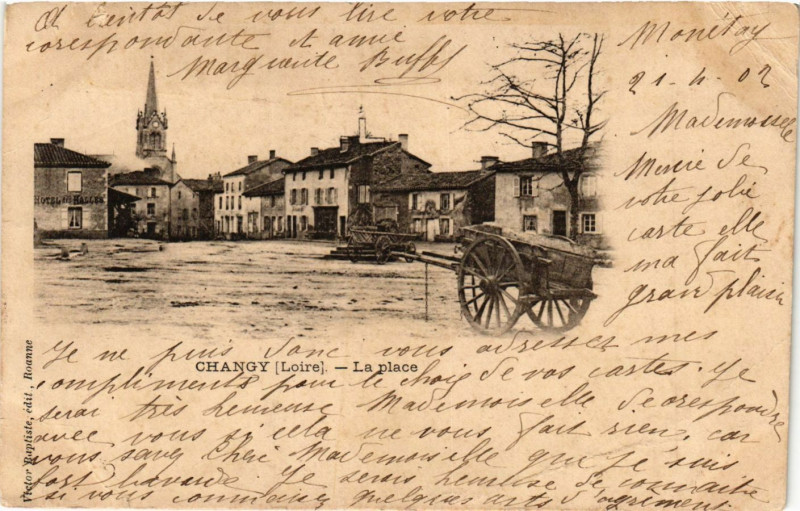 Monétay
21-4-02
Mademoiselle
Mercie de
votre jolie
carte elle
ma fait
grand plaisir
Je ne puis donc vous adresser mes
compliments pour le choix de vos cartes. Je
serai très heureuse Mademoiselle de corespondre
avec vous si cela ne vous fait rien, car
vous savez Chère Mademoiselle que je suis
fort bavarde. Je serais heureuse de connaitre
si vous connaissez quelques arts d'agriment.
A bientôt de vous lire votre
corespondante et amie
Marguerite
HOTEL DES HALLES
CHANGY [Loire]. — La place
Victor Baptiste, édit., Roanne